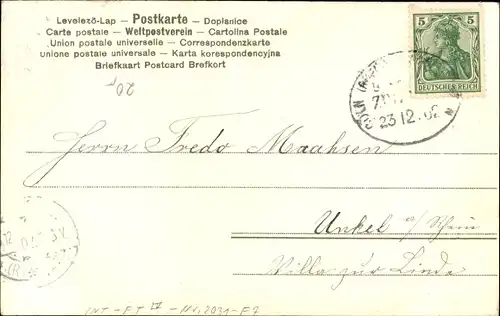 Levelezö-Lap — Postkarte — Dopisnice
Carte postale — Weltpostverein — Cartolina Postale
Union postale universelle — Correspondenzkarte
Unione postale universale — Karta korespondencyjna
Briefkaart Postcard Brefkort
20,-
5 5
DEUTSCHES REICH
23 12.02
Herrn Fredo Maahsen
Unkel a/Rhein
Villa zur Linde